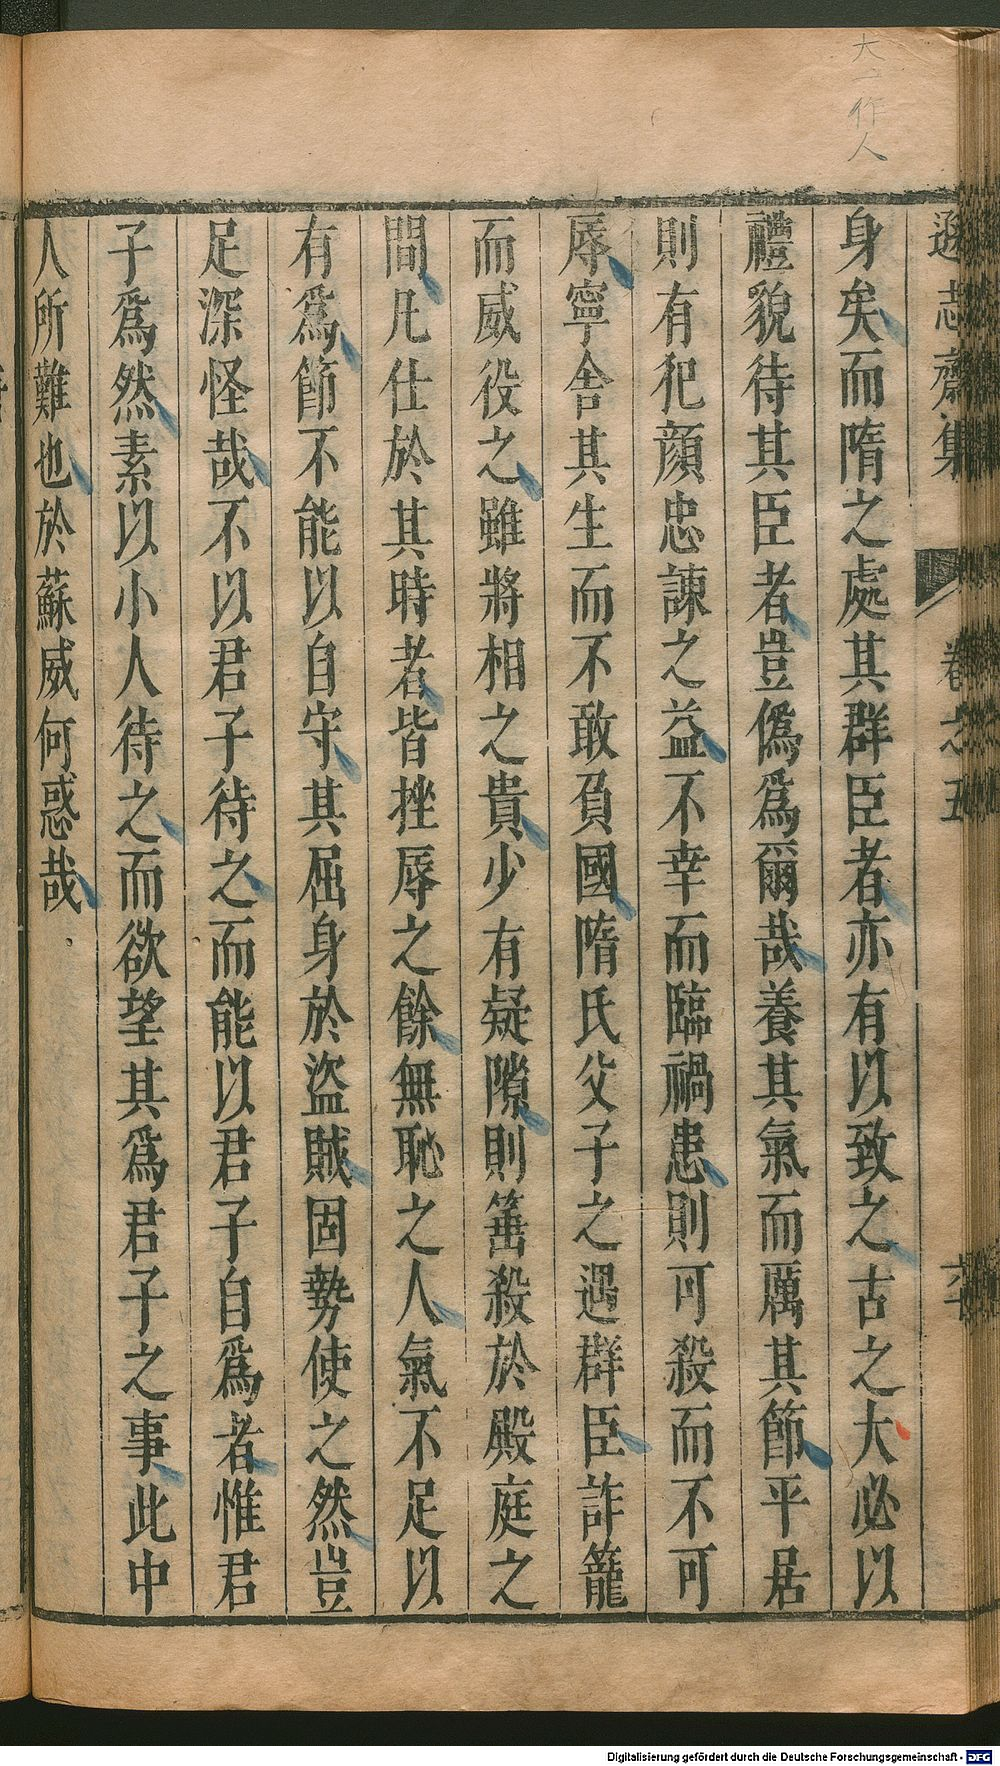 大一作人
遜志齋集
卷之五
身矣而隋之處其群臣者亦有以致之古之大必以
禮貌待其臣者豈僞爲爾哉養其氣而厲其節平居
則有犯顔忠諫之益不幸而臨禍患則可殺而不可
辱寧舍其生而不敢負國隋氏父子之遇群臣詐籠
而威役之雖將相之貴少有疑隙則箠殺於殿庭之
間凡仕於其時者皆挫辱之餘無恥之人氣不足以
有爲節不能以自守其屈身於盜賊固勢使之然豈
足深怪哉不以君子待之而能以君子自爲者惟君
子爲然素以小人待之而欲望其爲君子之事此中
人所難也於蘇威何惑哉
Digitalisierung gefördert durch die Deutsche Forschungsgemeinschaft - DFG